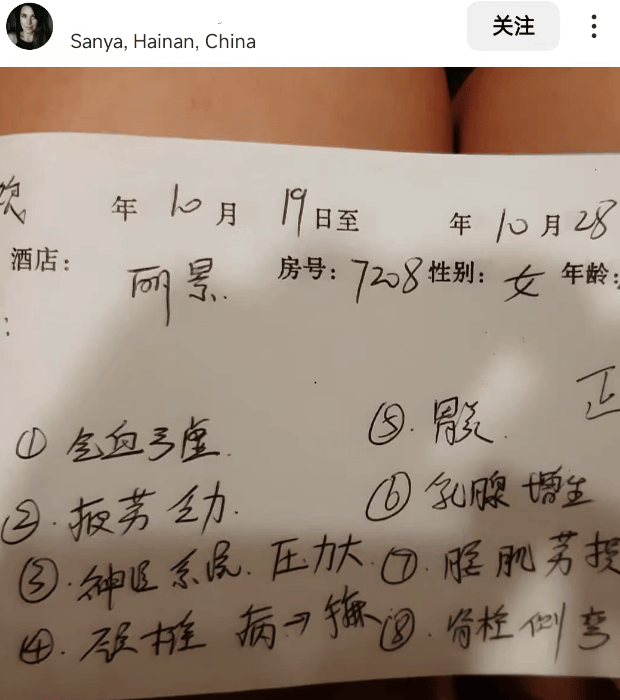 Sanya, Hainan, China
关注
年 10月 19日至 年 10月 28
酒店： 丽景. 房号：7208 性别：女 年龄：
① 气血亏虚. ⑤. 胃炎.
②. 疲劳乏力. ⑥ 乳腺增生
③. 神经系统. 压力大. ⑦. 腰肌劳损
④. 颈椎病→ ⑧. 脊柱侧弯